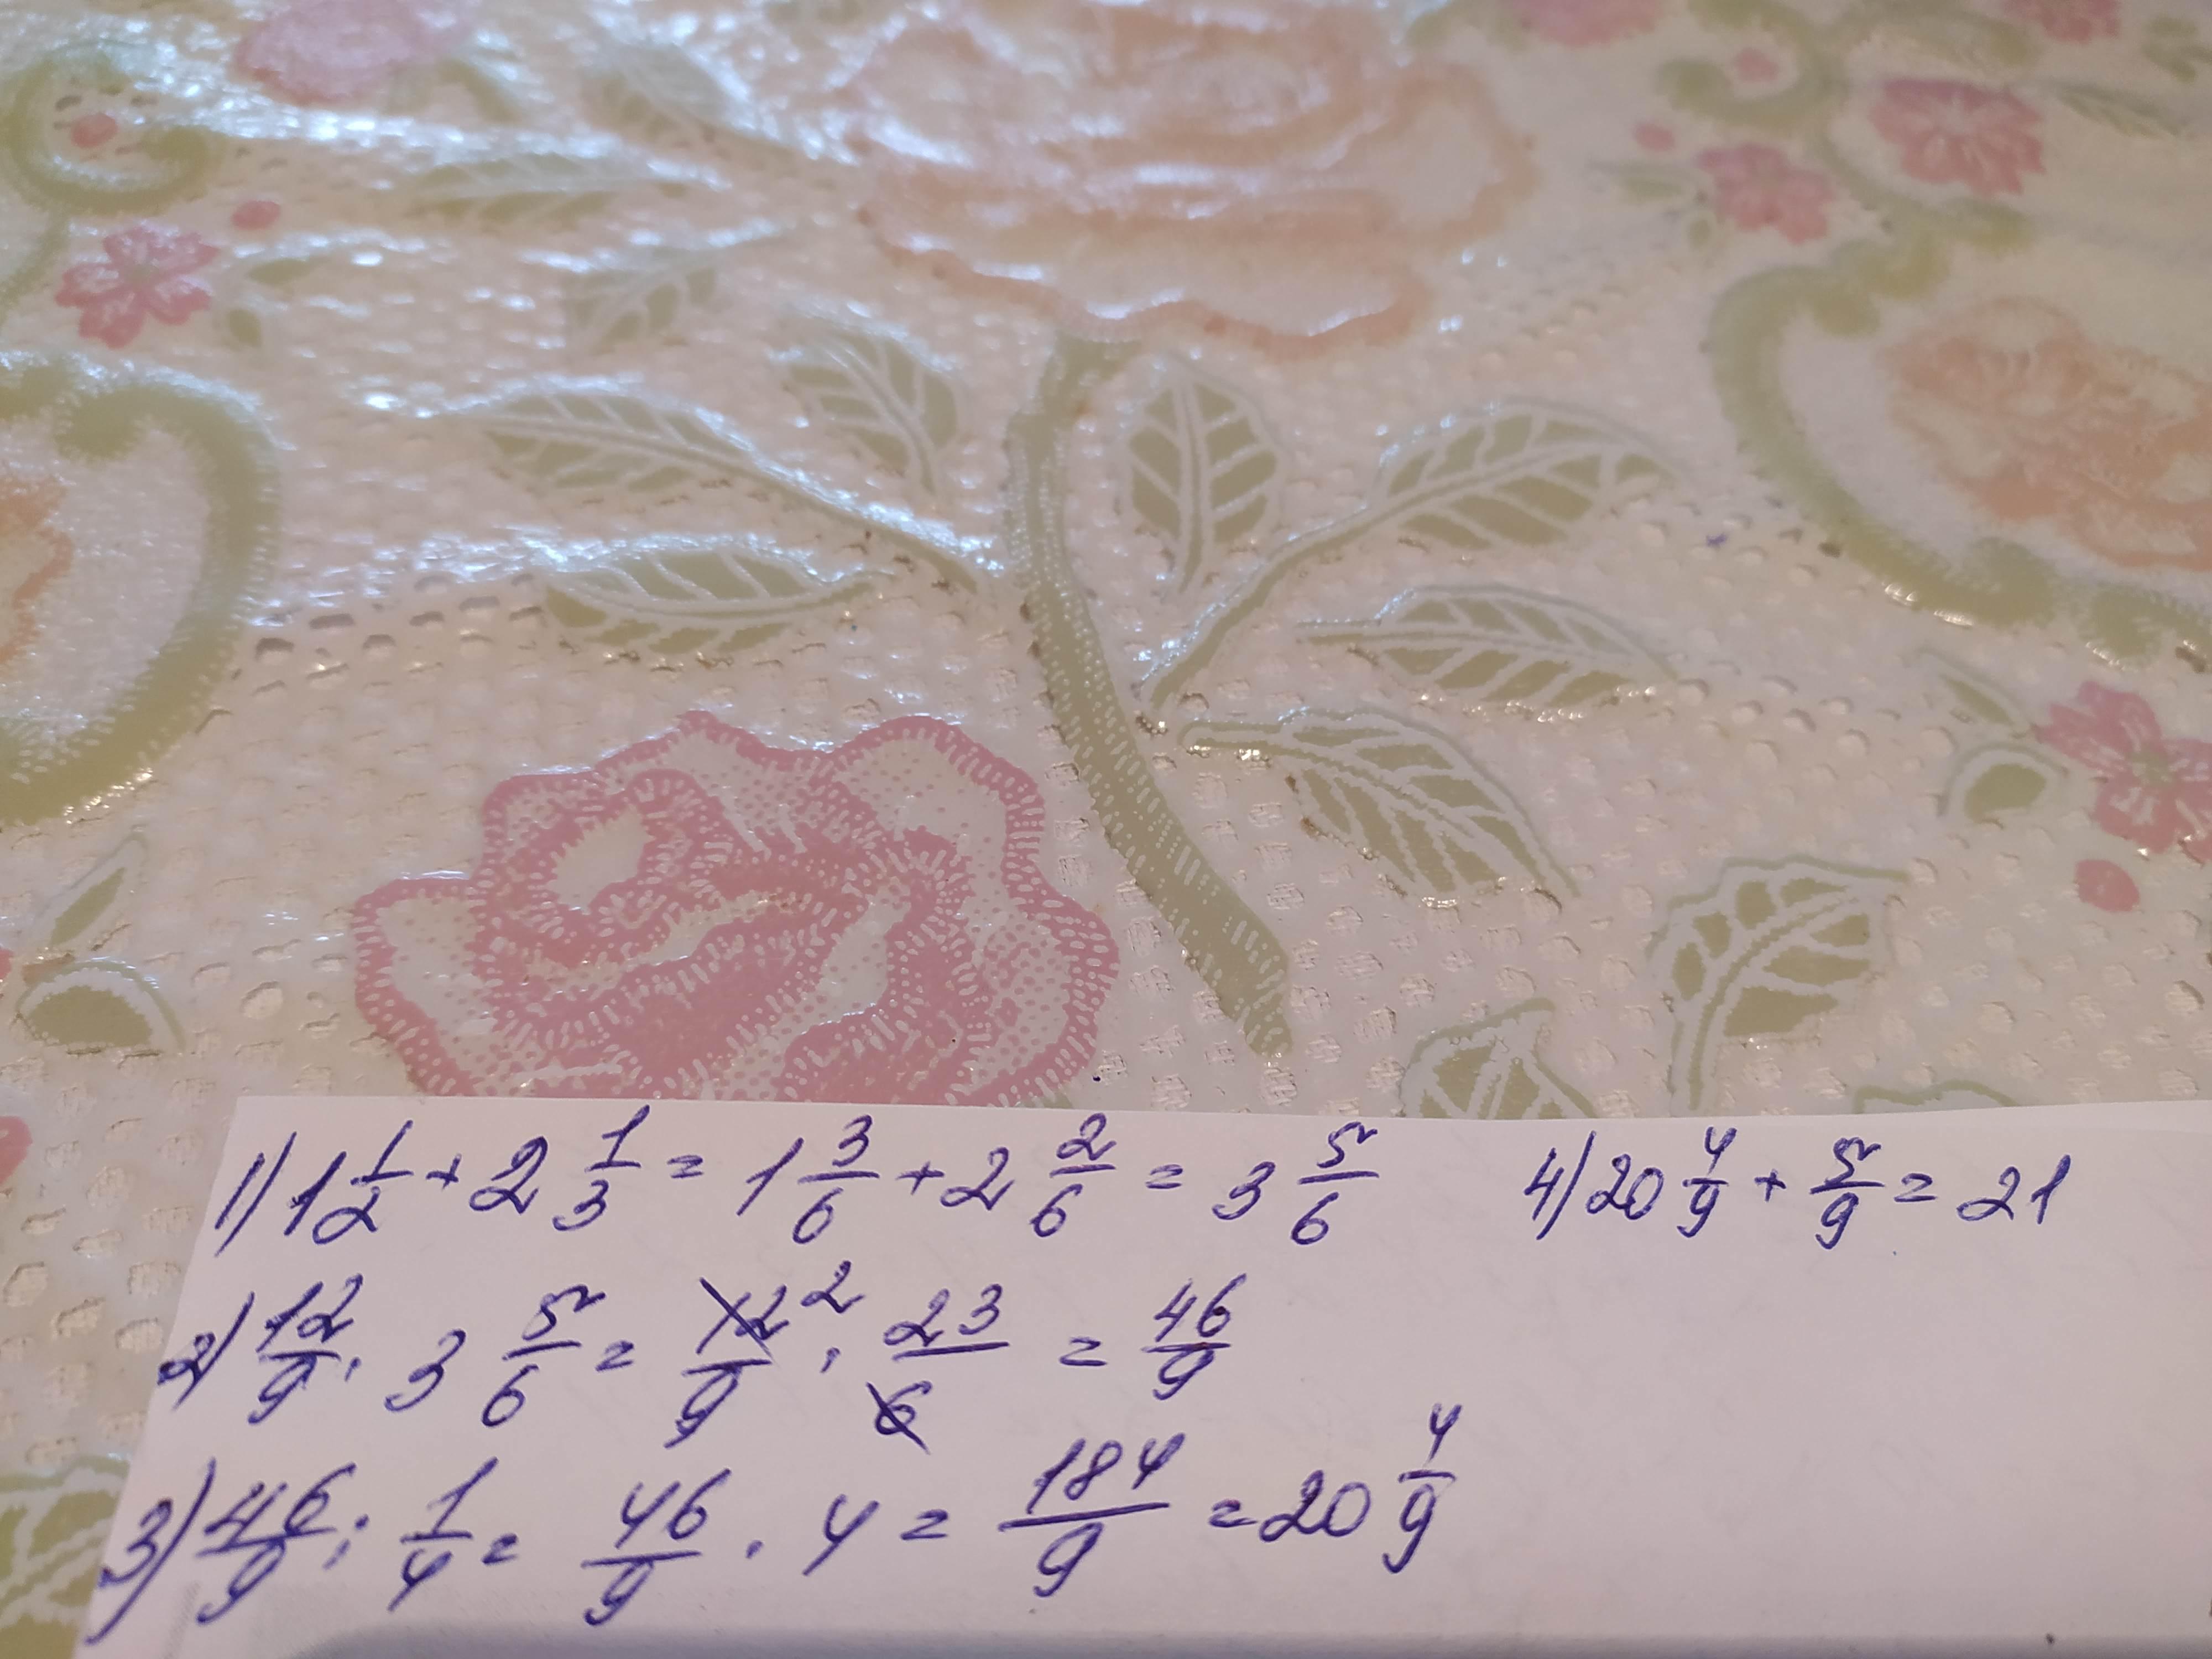 1) 1 1/2 + 2 1/3 = 1 3/6 + 2 2/6 = 3 5/6
4) 20 4/9 + 5/9 = 21
2) 12/9 · 3 5/6 = 12 2/9 · 23/6 = 46/9
3) 46/9 : 1/4 = 46/9 · 4 = 184/9 = 20 4/9